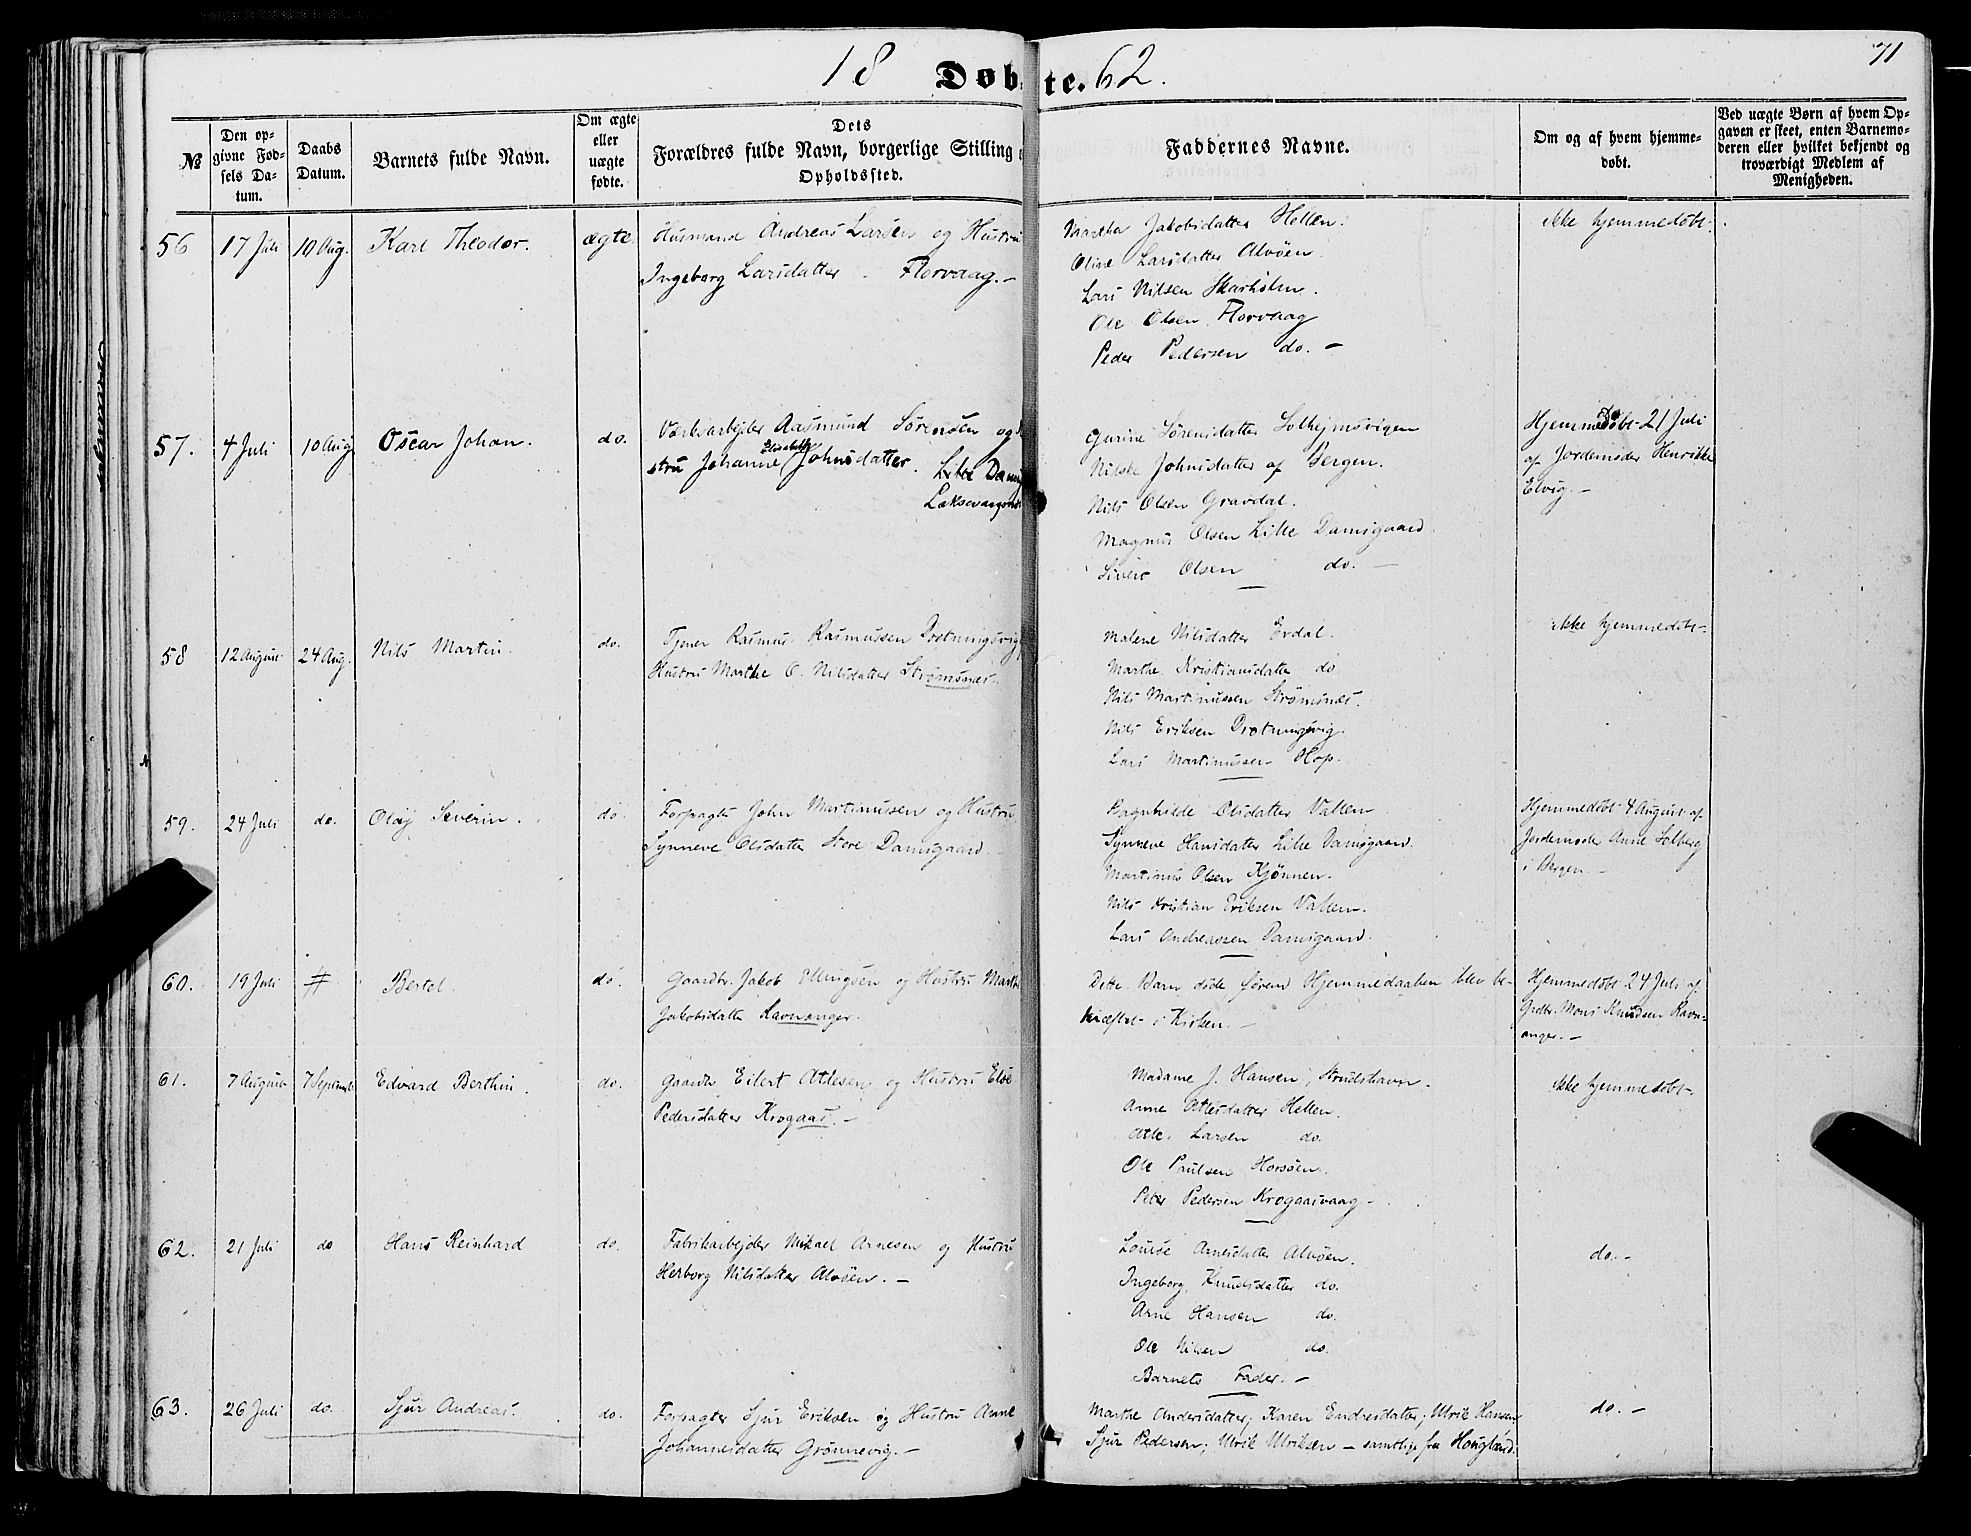 71
18 Døbte. 62.
№
Den opgivne Fødsels Datum.
Daabs Datum.
Barnets fulde Navn.
Om ægte eller uægte fødte.
Dets Forældres fulde Navn, borgerlige Stilling
Opholdssted.
Faddernes Navne.
Om og af hvem hjemmedøbt.
Ved uægte Børn af hvem Opgaven er skeet, enten Barnemoderen eller hvilket bekjendt og troværdigt Medlem af Menigheden.
56 17 Juli 10 Aug. Karl Theodor. ægte.
Husmand Andreas Larsen og Hustru
Ingeborg Larsdatter. Florvaag.-
Martha Jakobsdatter Hellen.
Oline Larsdatter Alvøen.
Lars Nilsen Skarholm.
Ole Olsen Florvaag
Peder Pedersen do. -
ikke hjemmedøbt.
57. 4 Juli 10 Aug Oscar Johan. do.
Værksarbejder Aasmund Sørensen og
stru Johanne Elisabeth Johnsdatter. Lille Dam
Laksevaag
Gurine Sørensdatter Solhejmsvigen
Nilske Johnsdatter af Bergen.
Nils Olsen Gravdal.
Magnus Olsen Lille Damsgaard
Sivert Olsen do. -
Hjemmedøbt 21 Juli
af Jordemoder Henrikke
Elvig.-
58 12 August 24 Aug. Nils Martin. do.
Tjener Rasmus Rasmussen Drotningsvig
Hustru Marthe O. Nilsdatter Strømsnes.
Malene Nilsdatter Erdal.
Marthe Kristiansdatter do
Nils Martinussen Strømsnes.
Nils Eriksen Drotningsvig.
Lars Martinussen Hop.
ikke hjemmedøbt-
59. 24 Juli do. Olaj Severin. do.
Forpagter John Martinusen og Hustru
Synneve Olsdatter Store Damsgaard.
Ragnhilde Olsdatter Vallen
Synneve Hansdatter Lille Damsgaard.
Martinus Olsen Kjønnen.
Nils Kristian Eriksen Vallen.
Lars Andreassen Damsgaard.
Hjemmedøbt 4 August af
Jordemoder Anne Solberg
i Bergen-
60. 19 Juli # Bertel. do.
Gaardbr. Jakob Ellingsen og Hustru Marth
Jakobsdatter Ravnanger.
Dette Barn døde førend Hjemmedaaben blev be-
kræftet i Kirken.-
Hjemmedøbt 24 Juli af
Grdbr. Mons Knudsen Ravn-
anger.-
61. 7 August 7 Septembr Edvard Berthin. do.
Gaardbr Eilert Atlesen og Hustru Else
Pedersdatter Krogaas.-
Madame J. Hansen, Strudshavn.
Anne Atlesdatter Hellen.
Atle Larsen do.
Ole Paulsen Horsøen.
Peter Pedersen Krogaasvaag-
ikke hjemmedøbt-
62. 21 Juli do Hans Reinhard do.
Fabrikarbejder Mikael Arnesen og Hustru
Herborg Nilsdatter Alvøen.-
Lovise Arnesdatter Alvøen.
Ingeborg Knudsdatter do.
Arne Hansen do.
Ole Nilsen do.
Barnets Fader.-
do.-
63. 26 Juli do. Sjur Andreas. do.
Forpagter Sjur Eriksen og Hustru Anne
Johannesdatter Grønnevig.-
Marthe Andersdatter; Karen Endresdatter; Ulrik Hansen
Sjur Pedersen; Ulrik Ulriksen - samtlige fra Hougland.
do.-